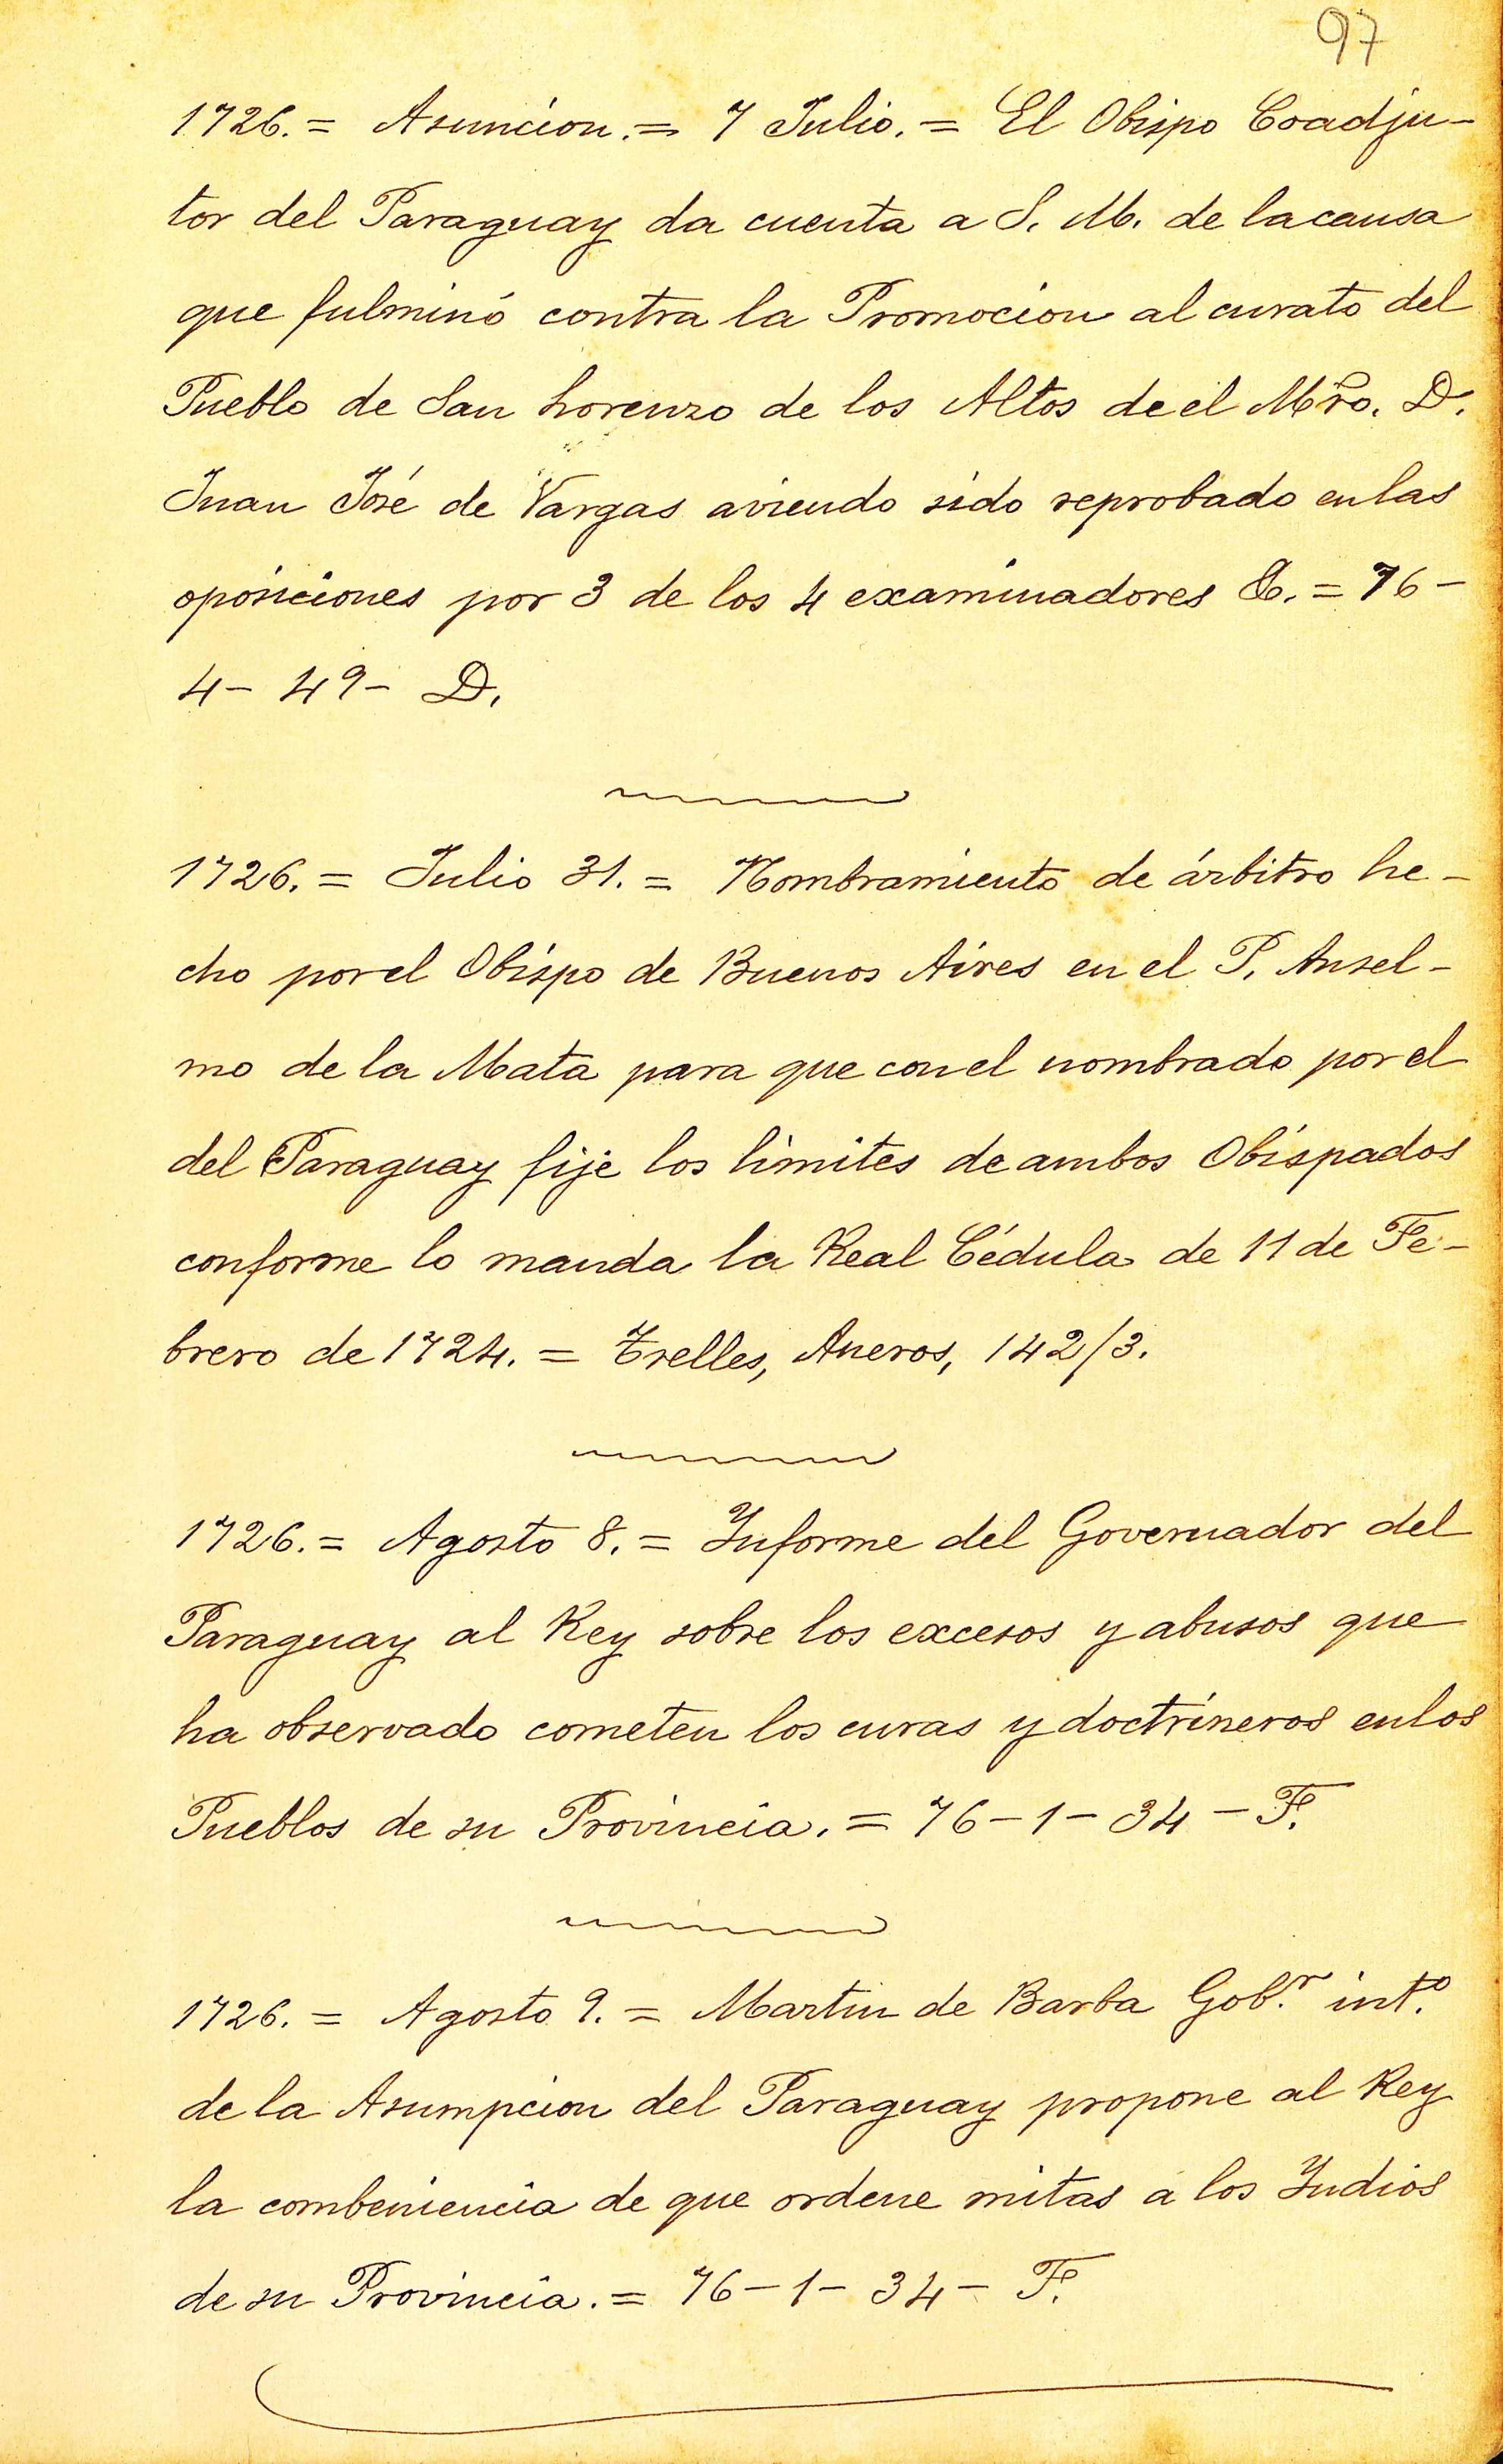 97
1726. = Asuncion. = 7 Julio. = El Obispo Coadju-
tor del Paraguay da cuenta a S. M. de la causa
que fulminó contra la Promocion al curato del
Pueblo de San Lorenzo de los Altos de el Mro. D.
Juan José de Vargas aviendo sido reprobado en las
oposiciones por 3 de los 4 examinadores &. = 76-
4- 49- D.
1726. = Julio 31. = Nombramiento de árbitro he-
cho por el Obispo de Buenos Aires en el P. Ansel-
mo de la Mata para que con el nombrado por el
del Paraguay fije los límites de ambos Obispados
conforme lo manda la Real Cédula de 11 de Fe-
brero de 1724. = Trelles, Aneros, 142/3.
1726. = Agosto 8. = Informe del Governador del
Paraguay al Rey sobre los excesos y abusos que
ha observado cometen los curas y doctrineros en los
Pueblos de su Provincia. = 76-1-34-F.
1726. = Agosto 9. = Martin de Barba Gob.r int.o
de la Asumpcion del Paraguay propone al Rey
la combeniencia de que ordene mitas a los Indios
de su Provincia. = 76-1-34- F.